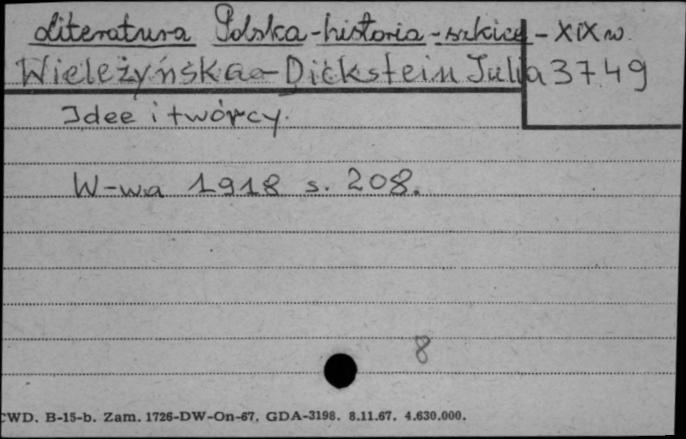 Literatura Polska - historia - szkice - XIX w.
Wieleżyńska - Dickstein Julia 3749
Idee i twórcy.
W-wa 1918 s. 208.
8
CWD. B-15-b. Zam. 1726-DW-On-67. GDA-3198. 8.11.67. 4.630.000.